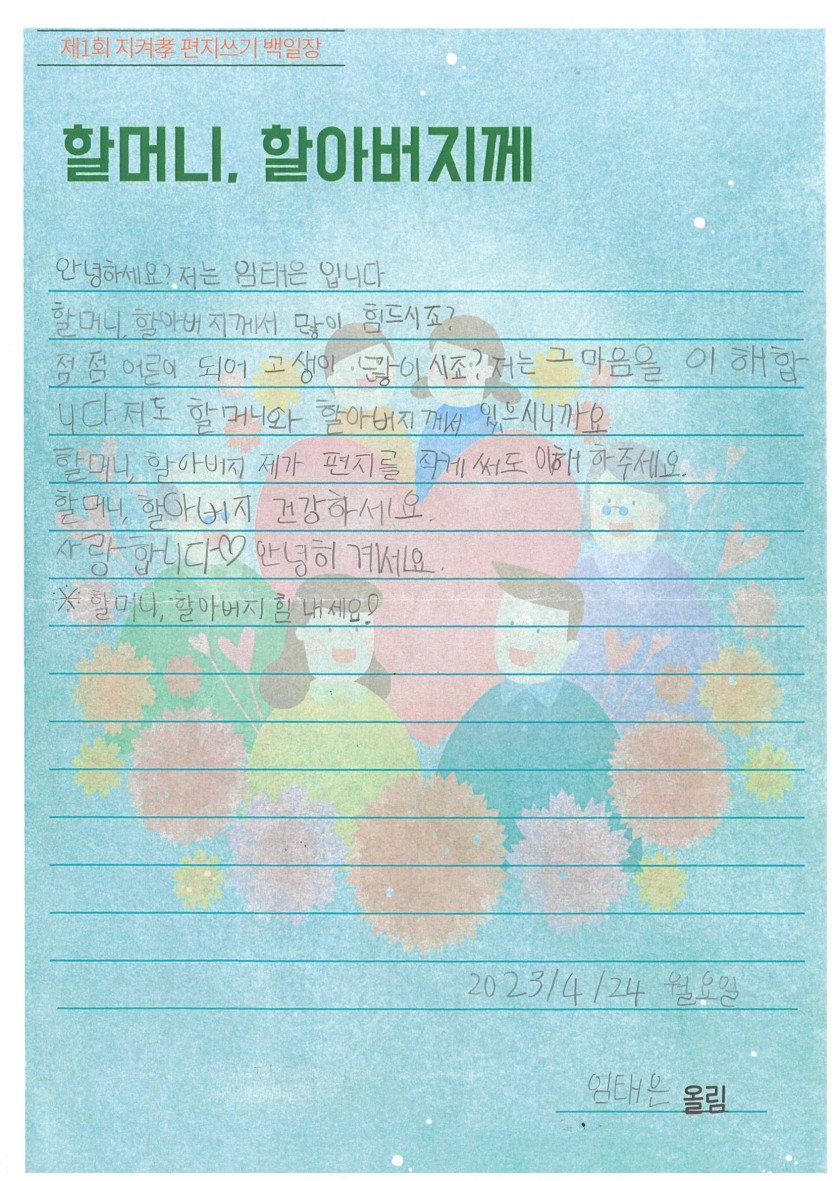 제1회 지켜孝 편지쓰기 백일장
할머니, 할아버지께
안녕하세요? 저는 임태은 입니다
할머니, 할아버지께서 많이 힘드시죠?
점점 어른이 되어 고생이 많이시죠? 저는 그 마음을 이해합
니다. 저도 할머니와 할아버지께서 있으시니까요
할머니, 할아버지 제가 편지를 작게 써도 이해 하주세요.
할머니, 할아버지 건강하세요.
사랑합니다♡ 안녕히 겨세요.
※ 할머니, 할아버지 힘 내세요!
2023/4/24 월요일
임태은 올림